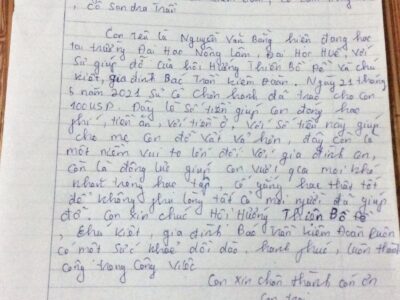 , cô Sandra Trần
Con tên là Nguyễn Văn Bằng hiện đang học
tại trường Đại Học Nông Lâm, Đại Học Huế. Với
sự giúp đỡ của hội Hướng Thiện Bồ Đề và chú
Kiệt, gia đình Bác Trần Kiêm Đoàn. Ngày 21 tháng
5 năm 2021 Sư cô Chơn hạnh đã trao cho con
100 USD. Đây là số tiền giúp con đóng học
phí, tiền ăn, với tiền ở. Với số tiền này giúp
cho mẹ con đỡ vất vả hơn, đây còn là
một niềm vui to lớn đối với gia đình con,
còn là động lực giúp con vượt qua mọi khó
khăn trong học tập, cố gắng học thật tốt
để không phụ lòng tất cả mọi người đã giúp
đỡ. Con xin chúc Hội Hướng Thiện Bồ Đề
, chú Kiệt, gia đình Bác Trần Kiêm Đoàn luôn
có một sức khỏe dồi dào, hạnh phúc, luôn thành
công trong công việc
Con xin chân thành cảm ơn